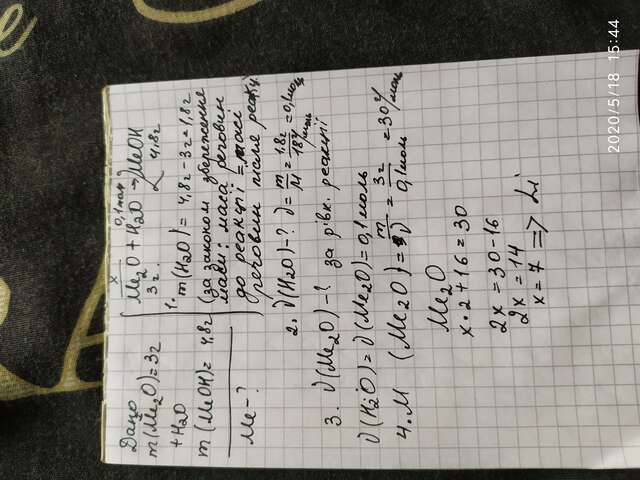 Дано
m(Me₂O)=3г
+H₂O
m(MeOH)=4,8г
Me-?
x 0,1моль
Me₂O + H₂O → 2MeOH
3г 4,8г
1. m(H₂O) = 4,8г-3г=1,8г
(за законом збереження
маси: маса речовин
до реакції = масі
речовин після реакції)
2. ν(H₂O)-? ν = m/M = 1,8г/18г/моль = 0,1моль
3. ν(Me₂O)-? за рівн. реакції
ν(H₂O)=ν(Me₂O)=0,1моль
4. M (Me₂O) = m/ν = 3г/0,1моль = 30г/моль
Me₂O
x·2+16=30
2x=30-16
2x=14
x=7 => Li
2020/5/18 15:44